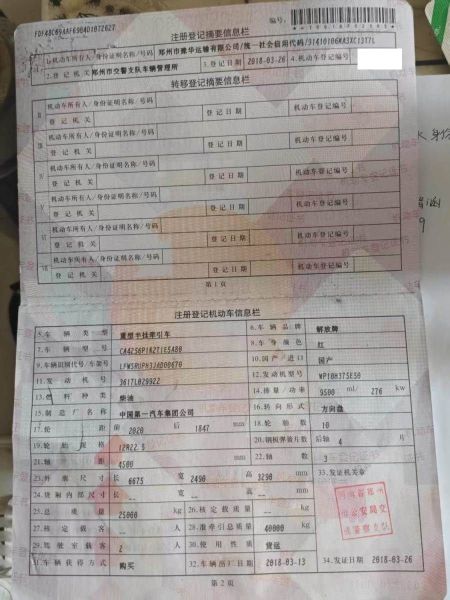 FDF48C694AF69D4D1072627
注册登记摘要信息栏
编号:
1.机动车所有人/身份证明名称/号码 郑州市豫华运输有限公司/统一社会信用代码/
2.登记机关 郑州市交警支队车辆管理所 3.登记日期 2018-03-26 4.机动车登记编号
转移登记摘要信息栏
机动车所有人/身份证明名称/号码
登记机关 登记日期 机动车登记编号
机动车所有人/身份证明名称/号码
登记机关 登记日期 机动车登记编号
机动车所有人/身份证明名称/号码
登记机关 登记日期 机动车登记编号
机动车所有人/身份证明名称/号码
登记机关 登记日期 机动车登记编号
机动车所有人/身份证明名称/号码
登记机关 登记日期 机动车登记编号
第1页
注册登记机动车信息栏
5.车辆类型 重型半挂牵引车 6.车辆品牌 解放牌
7.车辆型号 CA4256P1K2T1E5A80 8.车身颜色 红
9.车辆识别代号/车架号 10.国产/进口 国产
11.发动机号 3617L029922 12.发动机型号 WP10H375E50
13.燃料种类 柴油 14.排量/功率 9500 ml/ 276 kw
15.制造厂名称 中国第一汽车集团公司 16.转向形式 方向盘
17.轮距 前 2020 后 1847 mm 18.轮胎数 10
19.轮胎规格 12R22.5 20.钢板弹簧片数 后轴 4 片
21.轴距 4500 mm 22.轴数 3
23.外廓尺寸 长 6675 宽 2490 高 3290 mm 33.发证机关章
24.货厢内部尺寸 长 -- 宽 -- 高 -- mm
25.总质量 25000 kg 26.核定载质量 -- kg
27.核定载客 -- 人 28.准牵引总质量 40000 kg
29.驾驶室载客 2 人 30.使用性质 货运
31.车辆获得方式 购买 32.车辆出厂日期 2018-03-13 34.发证日期 2018-03-26
第2页